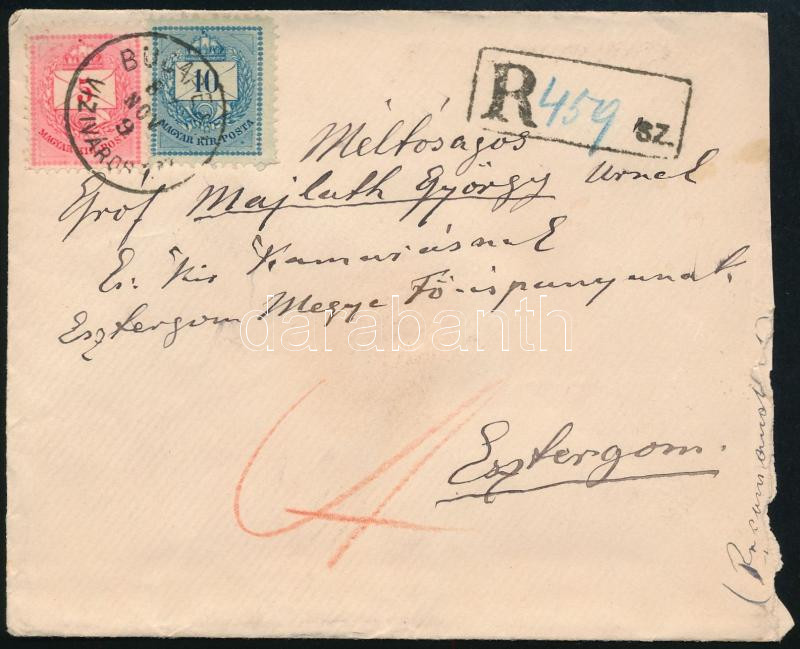 5
MAGYAR KIR. POSTA
10
MAGYAR KIR. POSTA
NOV
9
VIZIVÁROS
R 459 SZ.
Méltóságos
Gróf Majláth György Urnak
Cs: Kir Kamarásnak
Esztergom Megye Fő-ispanyanak.
darabanth
Esztergom.